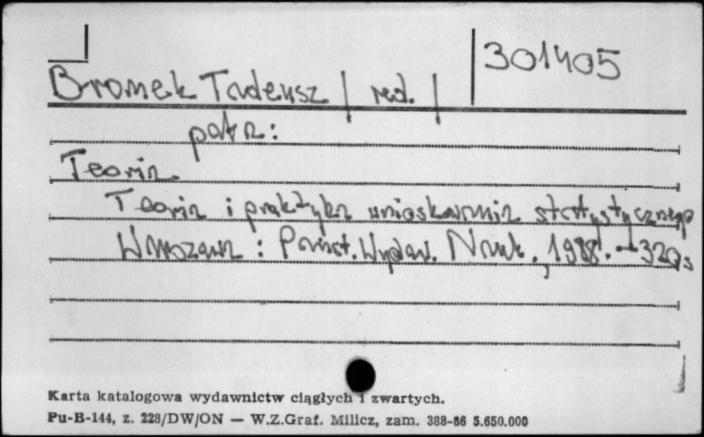 301405
Bromek Tadeusz / red. /
patrz:
Teoria.
Teoria i praktyka wnioskowania statystycznego
Warszawa : Państ. Wydaw. Nauk., 1988. - 320 s
Karta katalogowa wydawnictw ciągłych i zwartych.
Pu-B-144, z. 228/DW/ON — W.Z.Graf. Milicz, zam. 388-86 5.650.000